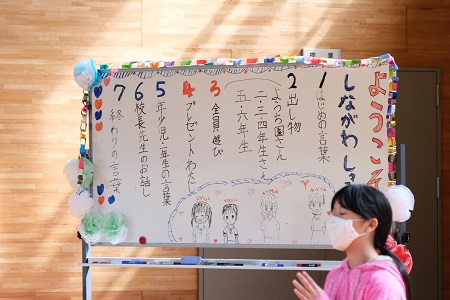 ようこそ
しながわ
1 はじめの言葉
2 出し物
ようち園さん
二・三・四年生さん
五・六年生
3 全員遊び
4 プレゼントわたし
5 年少児・年生の言葉
6 校長先生のお話し
7 終わりの言葉